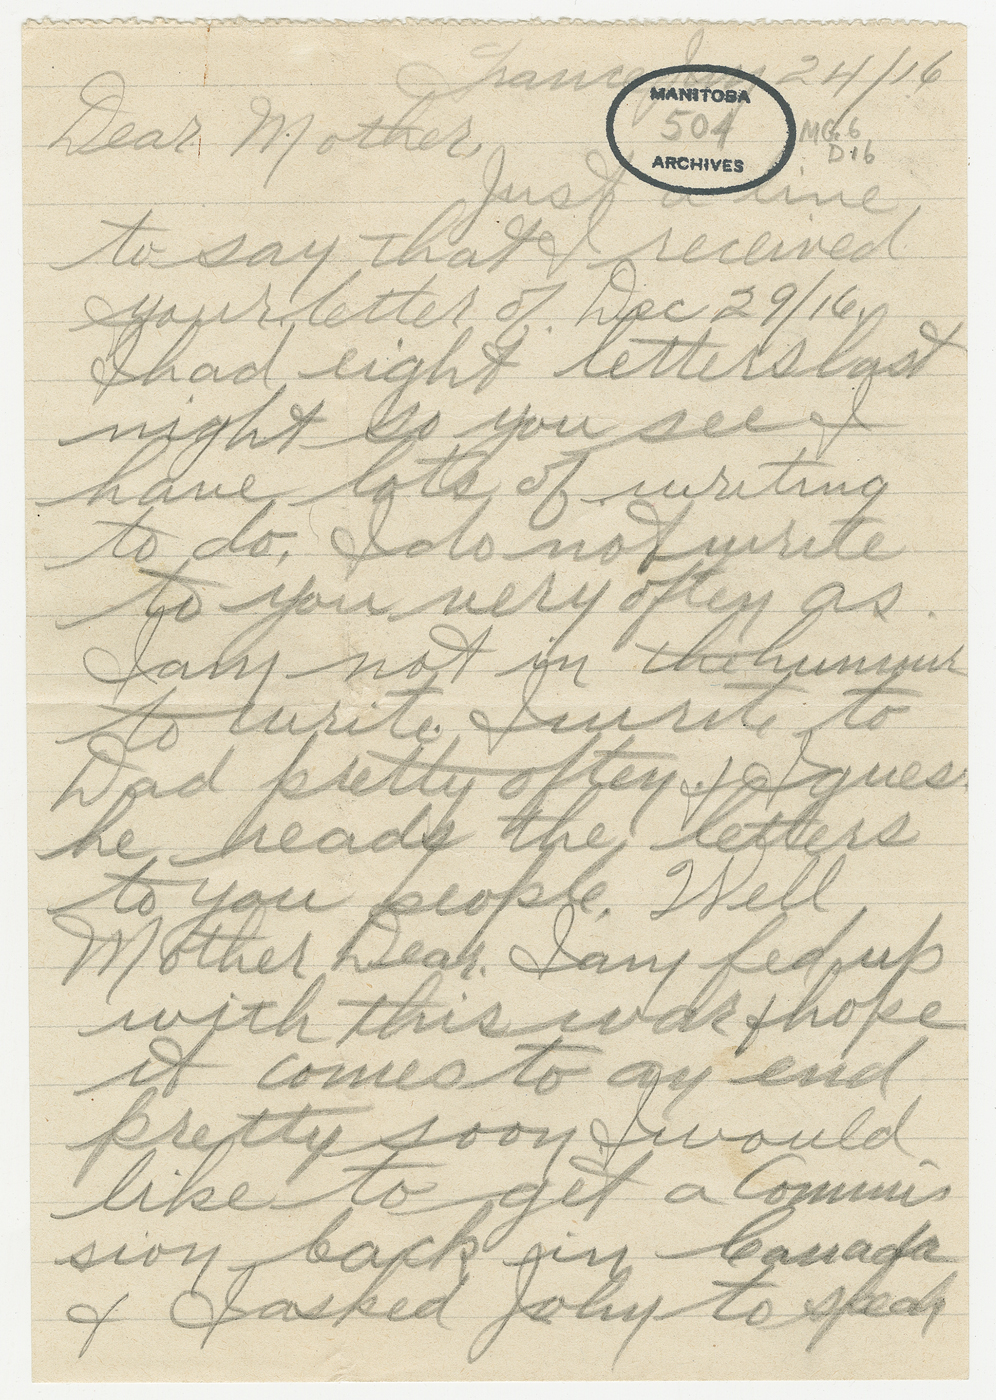 France Jany 24/16
MANITOBA
504
ARCHIVES
MG.6
D.16
Dear Mother,
Just a line
to say that I received
your letter of Dec 29/16.
I had eight letters last
night so you see I
have lots of writing
to do. I do not write
to you very often as
I am not in the humour
to write. I write to
Dad pretty often & I gues
he reads the letters
to you people. Well
Mother Dear. I am fed up
with this war & hope
it comes to an end
pretty soon I would
like to get a Commis
sion back in Canada
& I asked John to speak